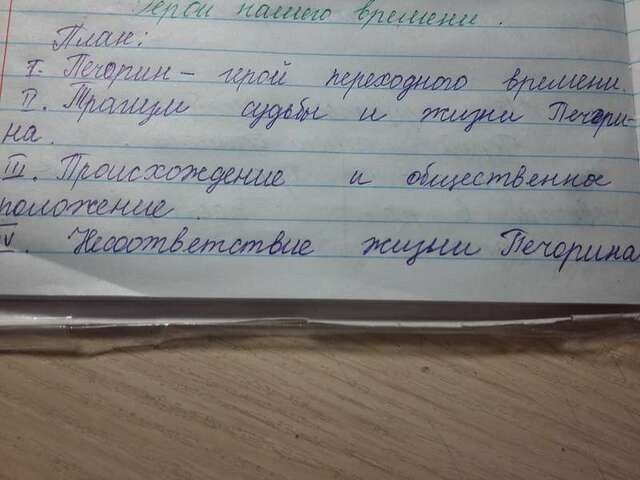 Герой нашего времени.
План:
I. Печорин – герой переходного времени.
II. Трагизм судьбы и жизни Печори-
на.
III. Происхождение и общественное
положение.
IV. Несоответствие жизни Печорина